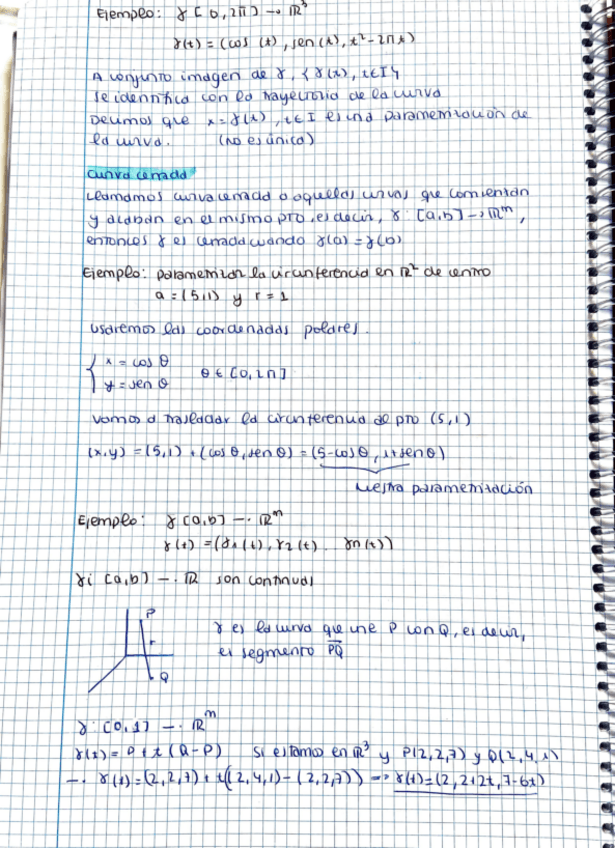 Ejemplo: γ [0,2π] → ℝ³
γ(t) = (cos (t), sen(t), t²-2πt)
A conjunto imagen de γ, {γ(t), t∈I}
se identifica con la trayectoria de la curva
Decimos que x=γ(t), t∈I es una parametrización de
la curva. (no es única)
Curva cerrada
Llamamos curva cerrada a aquellas curvas que comienzan
y acaban en el mismo pto, es decir, γ: [a,b] → ℝᵐ,
entonces γ es cerrada cuando γ(a) = γ(b)
Ejemplo: parametrizar la circunferencia en ℝ² de centro
a = (5,1) y r = 1
usaremos las coordenadas polares.
{ x = cos θ
y = sen θ θ ∈ [0,2π]
Vamos a trasladar la circunferencia al pto (5,1)
(x,y) = (5,1) + (cos θ, sen θ) = (5-cos θ, 1+sen θ)
nuestra parametrización
Ejemplo: γ [a,b] → ℝᵐ
γ(t) = (γ1(t), γ2(t) ... γn(t))
γi [a,b] → ℝ son continuas
P
γ es la curva que une P con Q, es decir,
el segmento PQ
Q
γ: [0,1] → ℝᵐ
γ(t) = P + t (Q-P) Si estamos en ℝ³ y P(2,2,7) y Q(2,4,1)
→ γ(t) = (2,2,7) + t((2,4,1) - (2,2,7)) => γ(t) = (2, 2+2t, 7-6t)